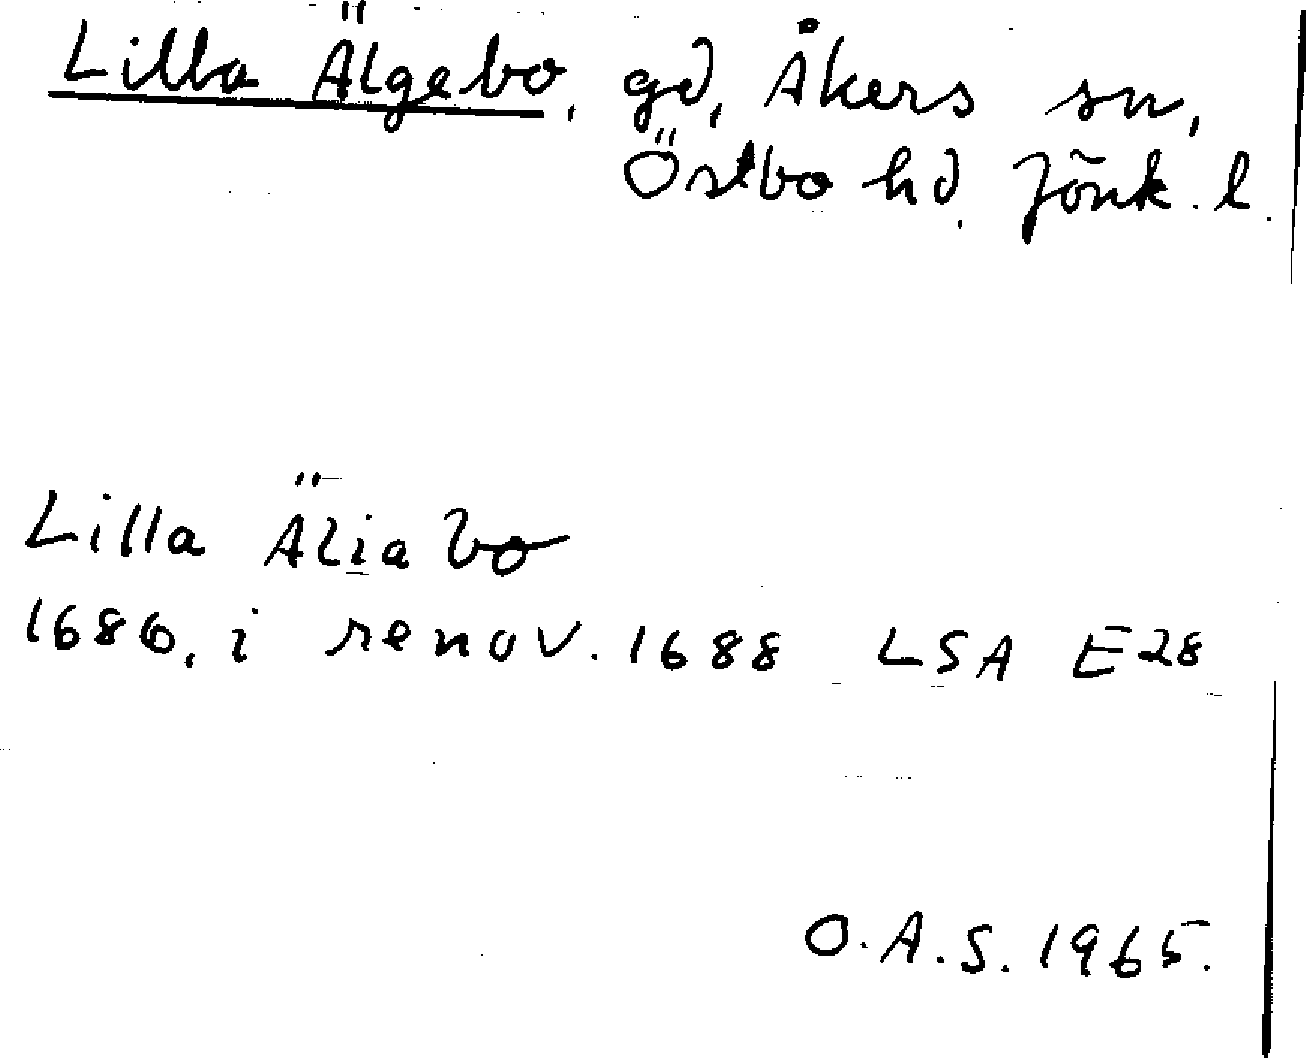 Lilla Älgebo, gd, Åkers sn,
Östbo hd, Jönk. l.
Lilla Äliabo
1686, i renov. 1688 LSA E28
O.A.S. 1965.